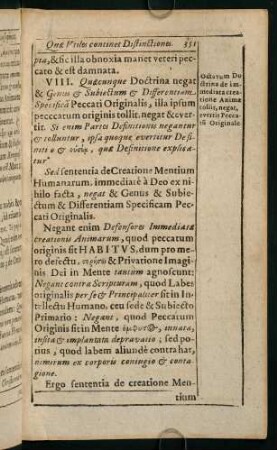 Quæ Vtibo continet Distinctiones 351
pta, & sic illa obnoxia manet veteri pec-
cato & est damnata.
VIII. Quæcunque Doctrina negat
& Genus & Subiectum & Differentiam
Specificã Peccati Originalis, illa ipsum
pecccatum originis tollit. negat & ever-
tit. Si enim Partes Definitionis negantur
& tolluntur, ipsa quoque evertitur De-
finitio & , quæ Definitione explica-
tur
Sed sententia de Creatione Mentium
Humanarum. immediatè à Deo ex ni-
hilo facta, negat & Genus & Subie-
ctum & Differentiam Specificam Pec-
cati Originalis.
Negant enim Defensores Immediatæ
creationis Animarum, quod peccatum
originis sit HABITVS, dum pro me-
ro defectu, & Privatione Imagi-
nis Dei in Mente tantùm agnoscunt:
Negant contra Scripturam, quod Labes
originalis per se & Principaliter sit in In-
tellectu Humano. ceu sede & Subiecto
Primario: Negant, quod Peccatum
Originis sit in Mente , innata,
insita & implantata depravatio; sed po-
tius, quod labem aliunde contrahat,
nimirum ex corporis contagio & conta-
gione.
Ergo sententia de creatione Men-
tium
Odiatum Do
ctrina de im-
mediata crea-
tione Animæ
tollit, negat,
evertit Pecca-
tũ Originale